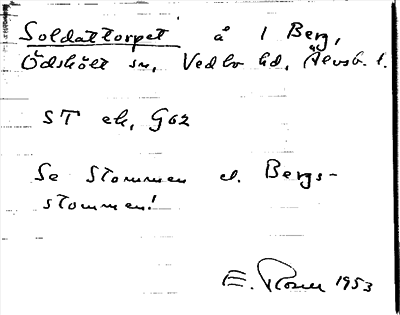 Soldattorpet å 1 Berg,
Ödskölt sn, Vedbo hd, Älvsb. l.
ST ek, G62
Se Stommen el. Bergs-
stommen!
E. 1953